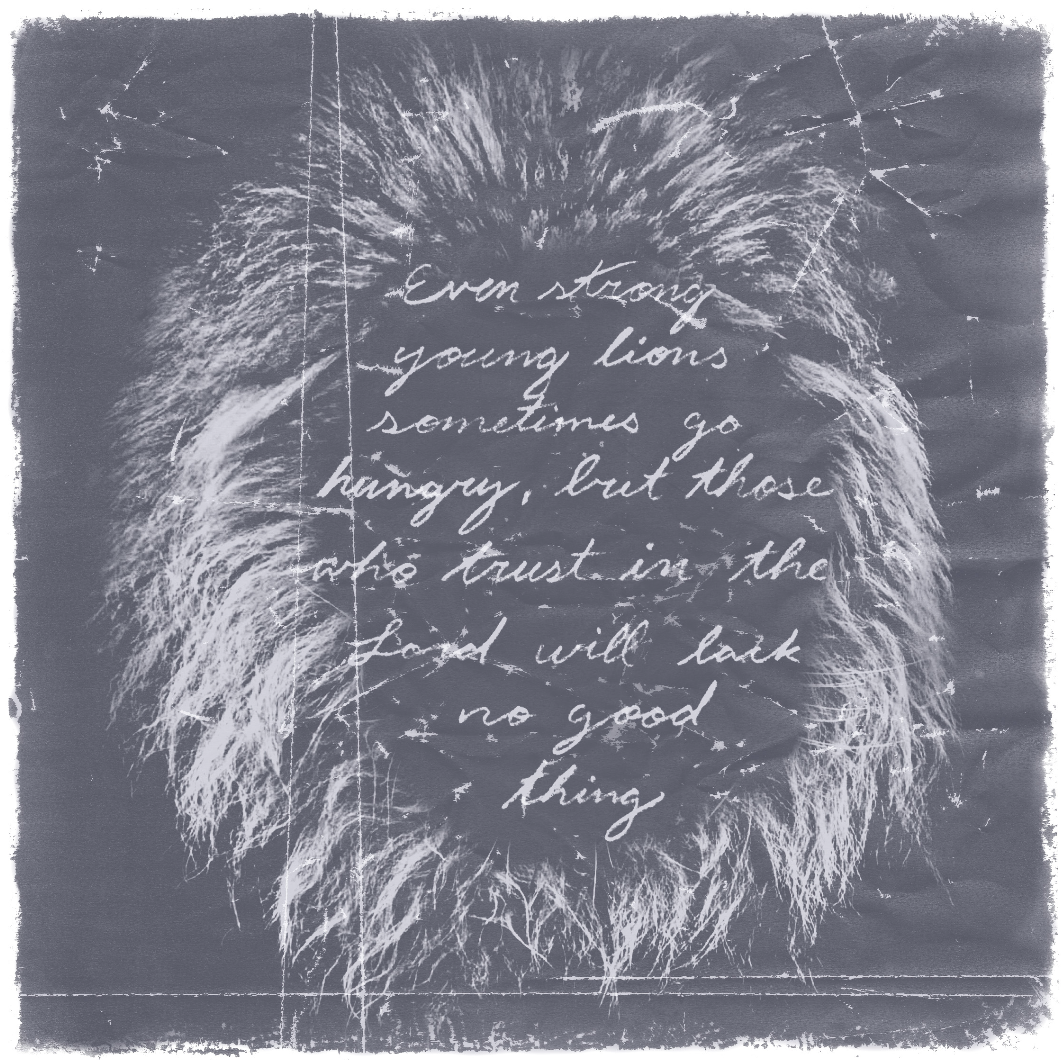 Even strong
young lions
sometimes go
hungry, but those
who trust in the
Lord will lack
no good
thing